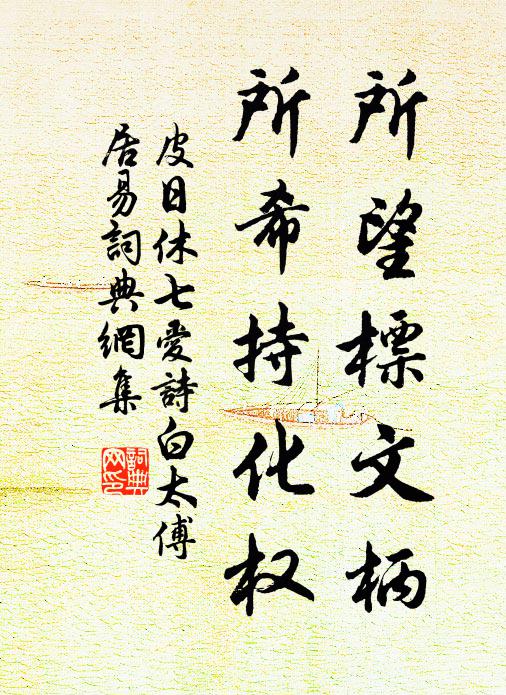 所望標文柄
所希持化权
皮日休七愛詩白太傅
居易詞典網集
詞典
网印